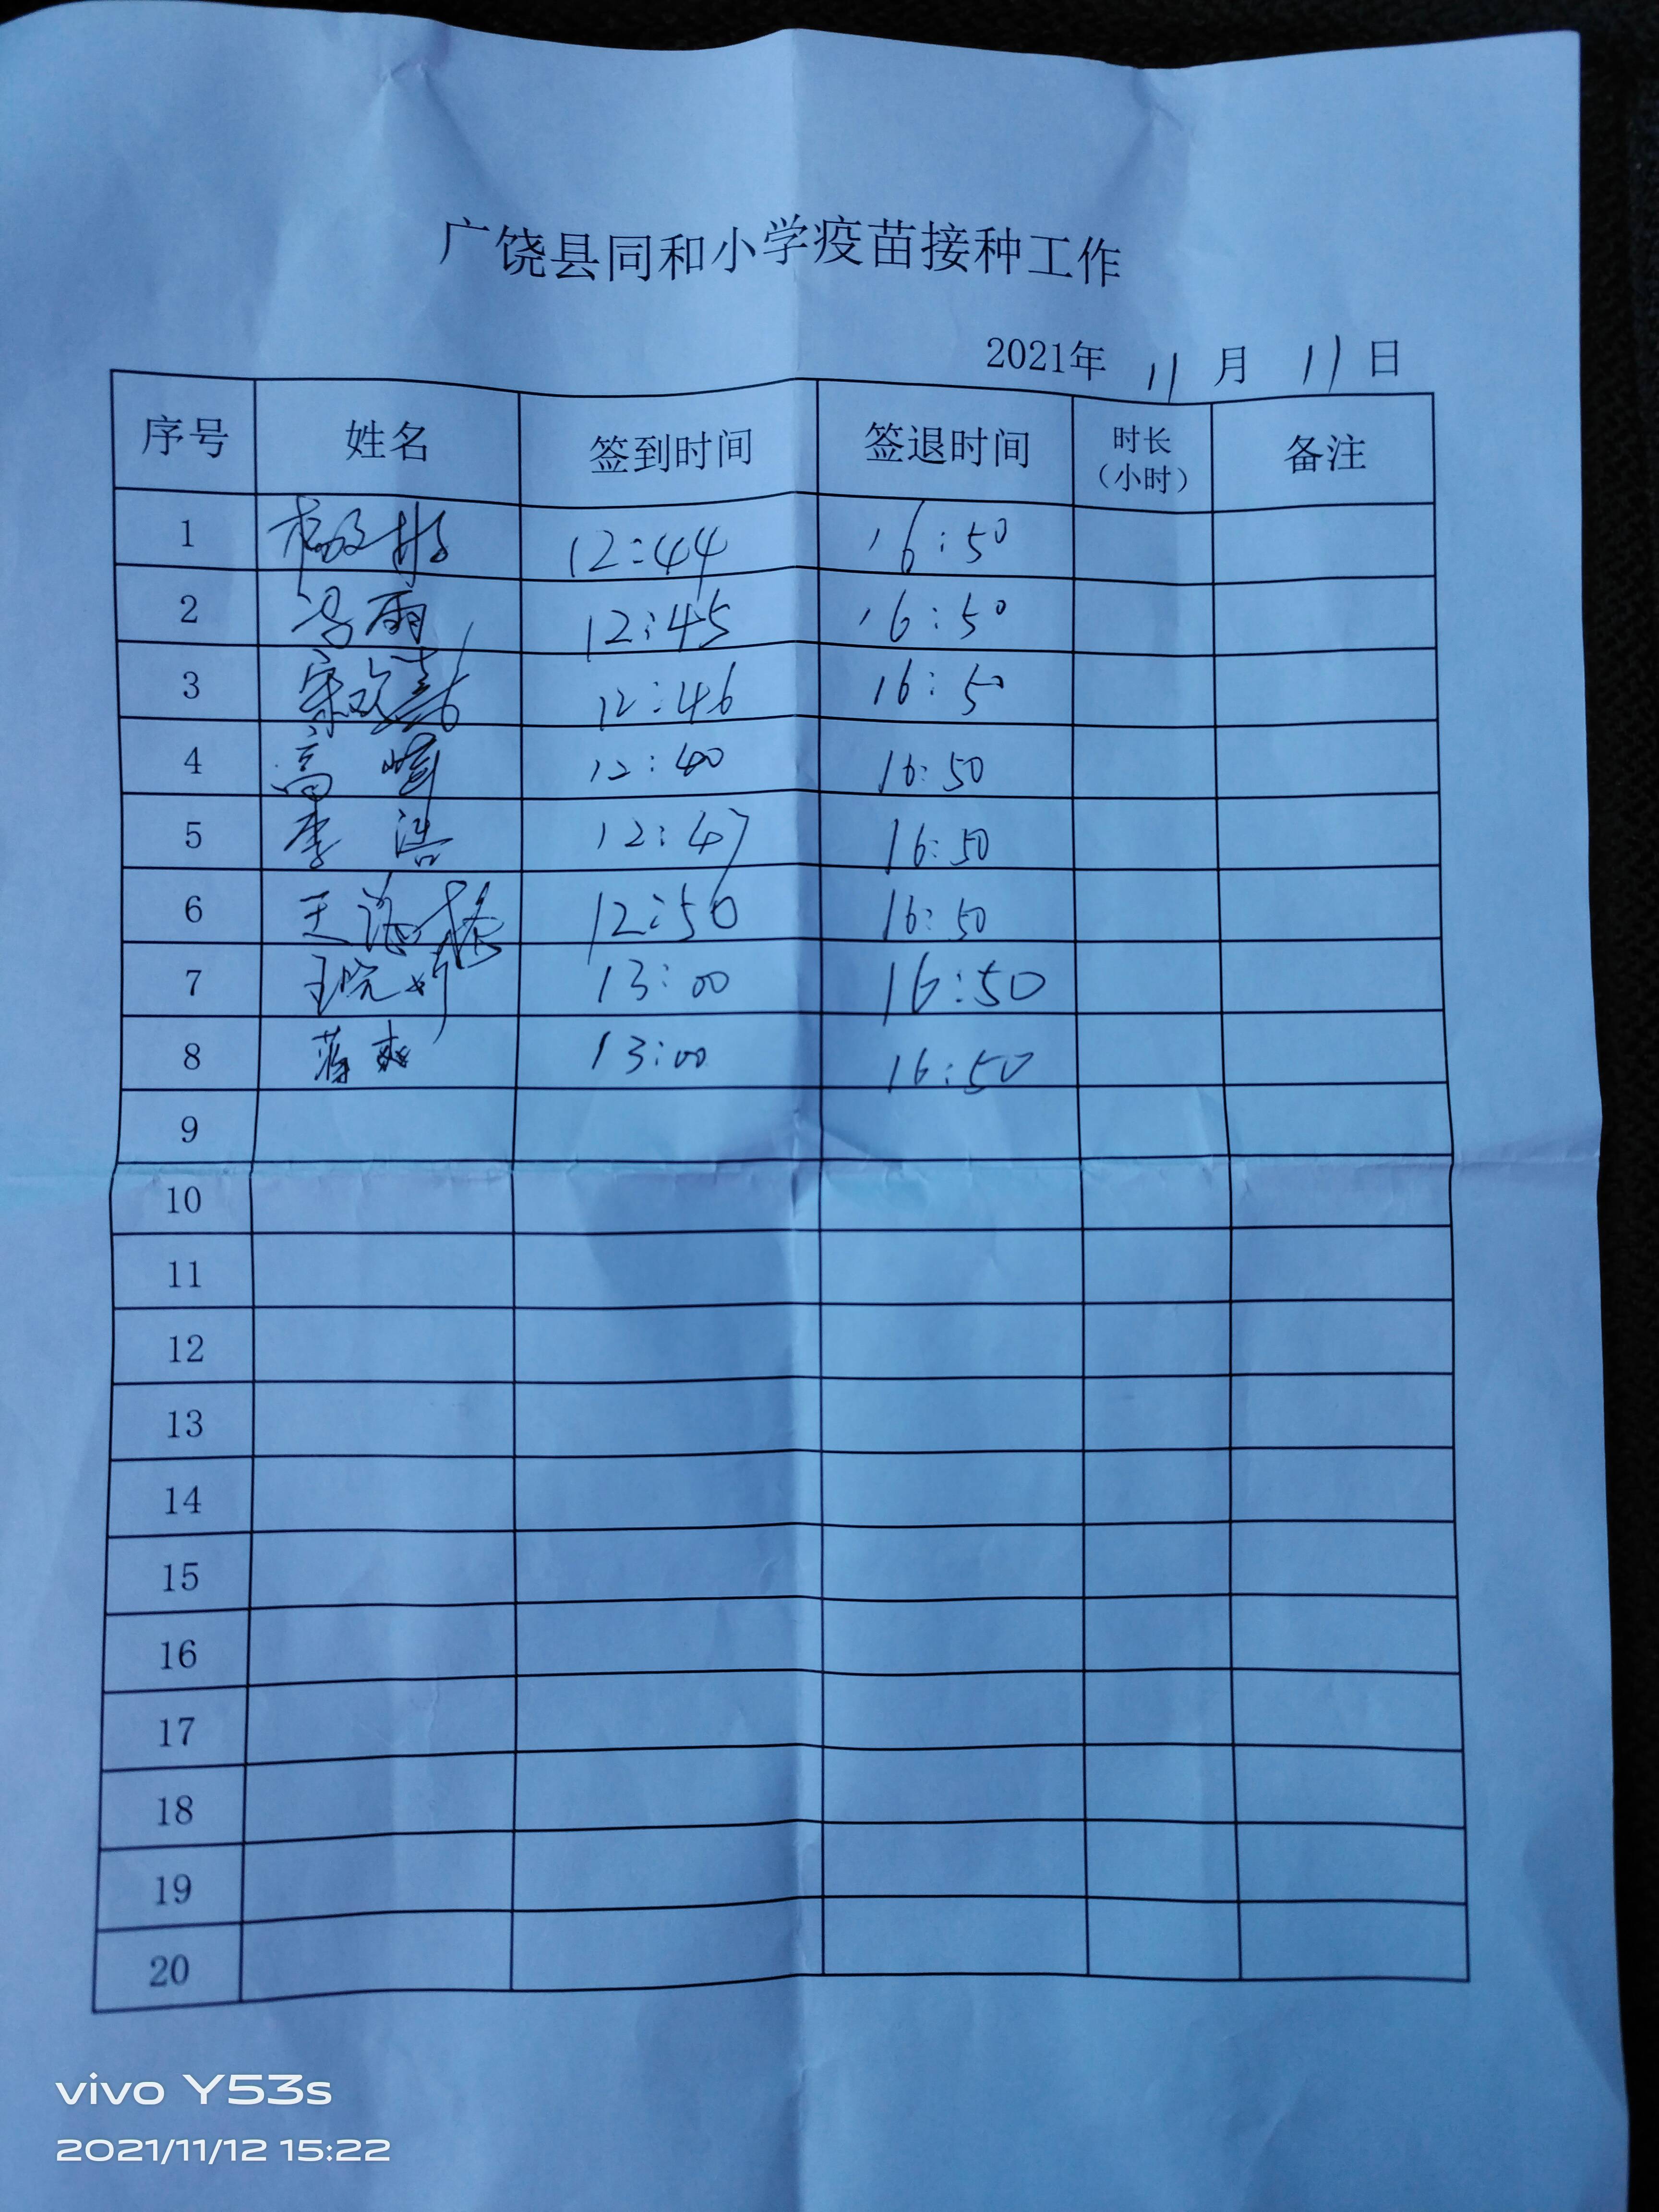 广饶县同和小学疫苗接种工作
2021年 11 月 11 日
序号 姓名 签到时间 签退时间 时长（小时） 备注
1 12:44 16:50
2 冯雨 12:45 16:50
3 12:46 16:50
4 高 12:40 16:50
5 李浩 12:47 16:50
6 王 12:50 16:50
7 王 13:00 16:50
8 蒋爽 13:00 16:50
9
10
11
12
13
14
15
16
17
18
19
20
vivo Y53s
2021/11/12 15:22